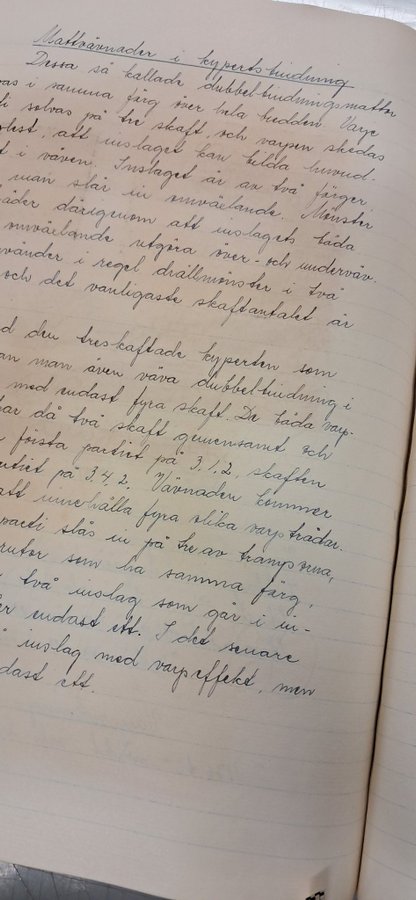 Mattvävnader i kypertsbindning
Dessa så kallade dubbelbindningsmattor
vas i samma färg över hela bredden. Varje
solvas på tre skaft, och varpen skedas
att inslaget kan bilda huvud-
t i väven. Inslaget är av två färger
man slår in omväxlande. Mönster
därigenom att inslagets båda
omväxlande utgöra över- och underväv.
nvänder i regel drällmönster i två
och det vanligaste skaftantalet är
d den treskaftade kyperten som
an man även väva dubbelbindning i
med endast fyra skaft. De båda varp-
har då två skaft gemensamt och
första partiet på 3, 1, 2, skaften
rtiet på 3. 4. 2. Vävnaden kommer
att innehålla fyra olika varptrådar.
parti slås in på tre av tramporna,
rutor som ha samma färg,
två inslag som går i in-
er endast ett. I det senare
inslag med varpeffekt, men
dast ett.